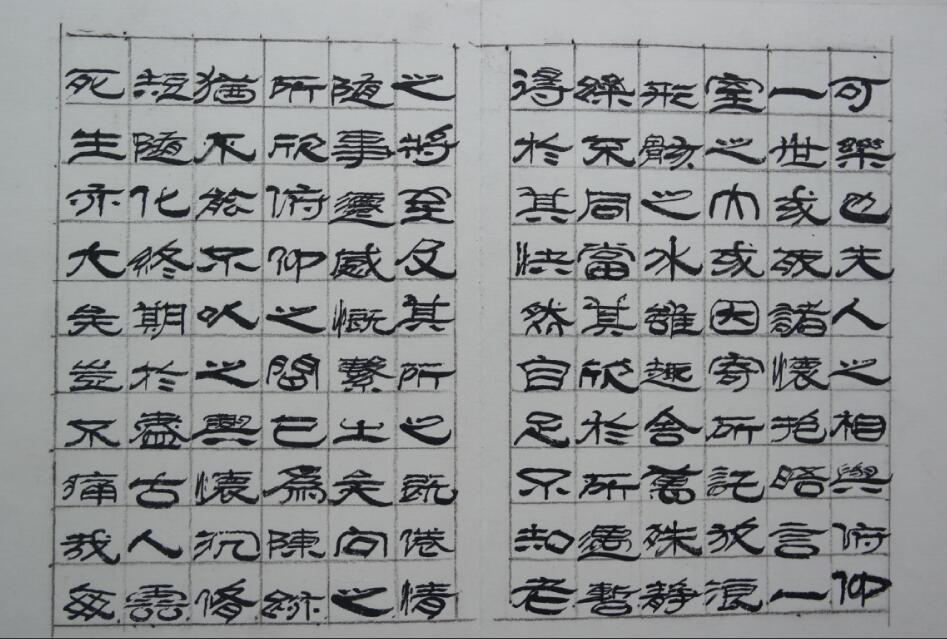 可樂也夫人之相與俯仰
一世或取諸懷抱晤言一
室之內或因寄所託放浪
形骸之外雖趣舍萬殊静
躁不同當其欣於所遇暫
得於其快然自足不知老
之將至及其所之既倦情
随事遷感慨繫之矣向之
所欣俯仰之間已為陳跡
猶不能不以之興懷況脩
短隨化終期於盡古人雲
死生亦大矣豈不痛哉每